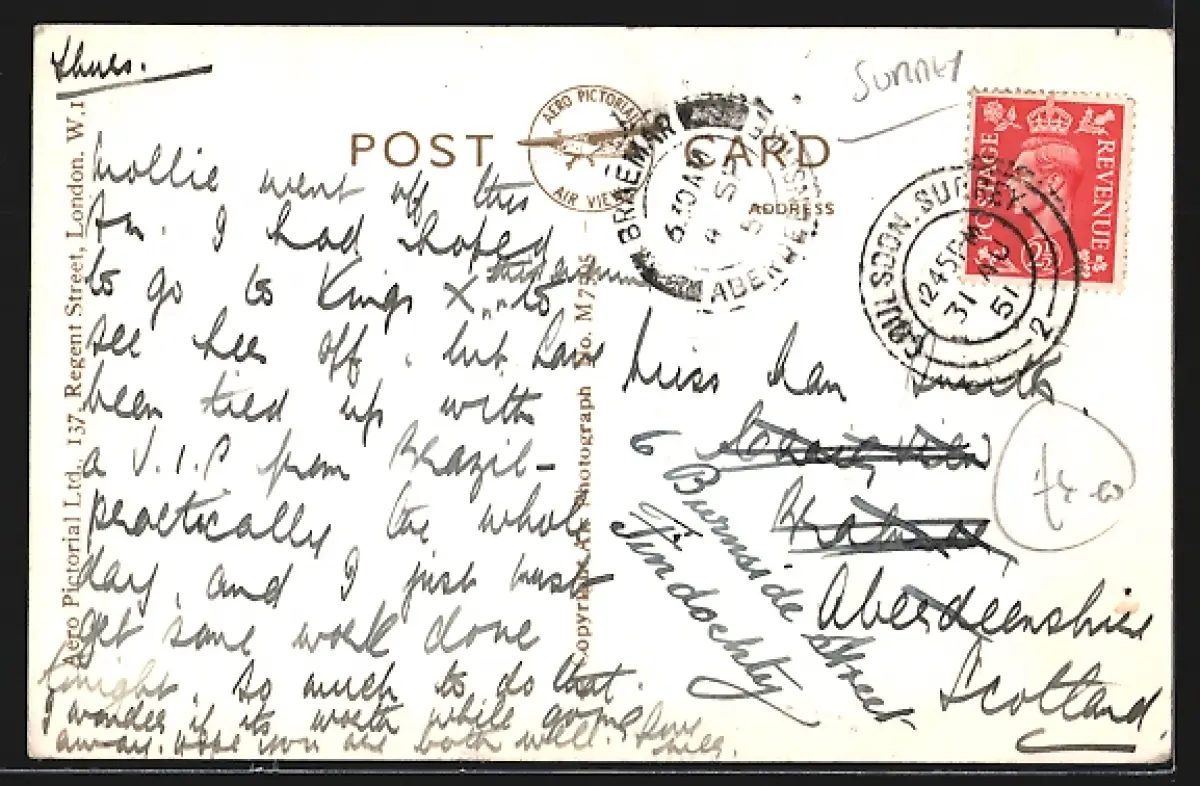 Thurs.
Mollie went off this
pm. I had hoped
to go to Kings X this evening to
see her off, but have
been tied up with
a V.I.P from Brazil -
practically the whole
day, and I just must
get some work done
tonight, so much to do that
I wonder if its worth while going
away. Hope you are both well. Love
SURREY
POST CARD
ADDRESS
AERO PICTORIAL
AIR VIEW
BRAEMAR
6.30AM
ABERDEENSHIRE
COULSDON. SURREY
2 45 PM
31 AU
51
2
POSTAGE REVENUE
2½
Miss
6 Burnside Street
Findochty
Aberdeenshire
Scotland
Aero Pictorial Ltd., 137, Regent Street, London. W.1
Copyright Air Photograph No. M7